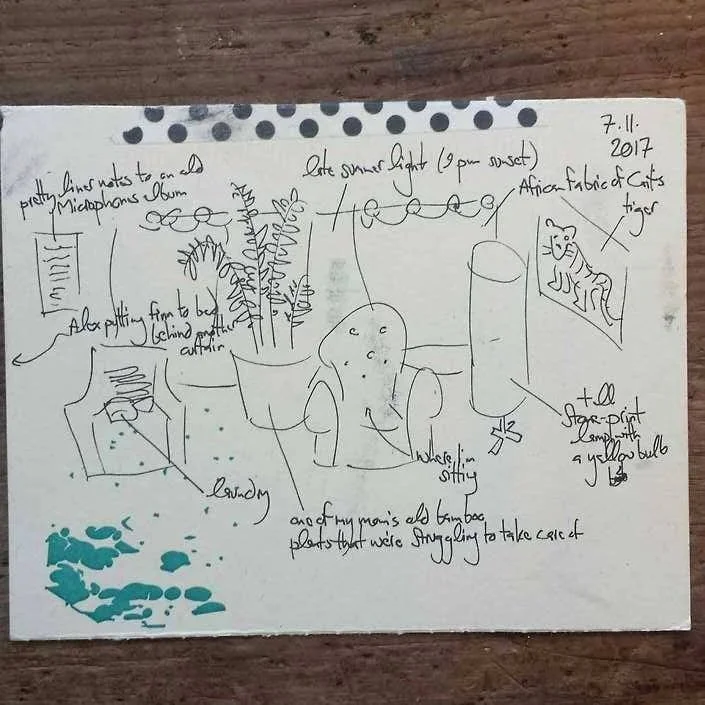 7.11.
2017
pretty liner notes to an old
Microphones album
late summer light (9 pm sunset)
African fabric of Cait's
tiger
Alex putting Finn to bed
behind another
curtain
tall
store-print
lamp with
a yellow bulb
where i'm
sitting
laundry
one of my mom's old bamboo
plants that we're struggling to take care of